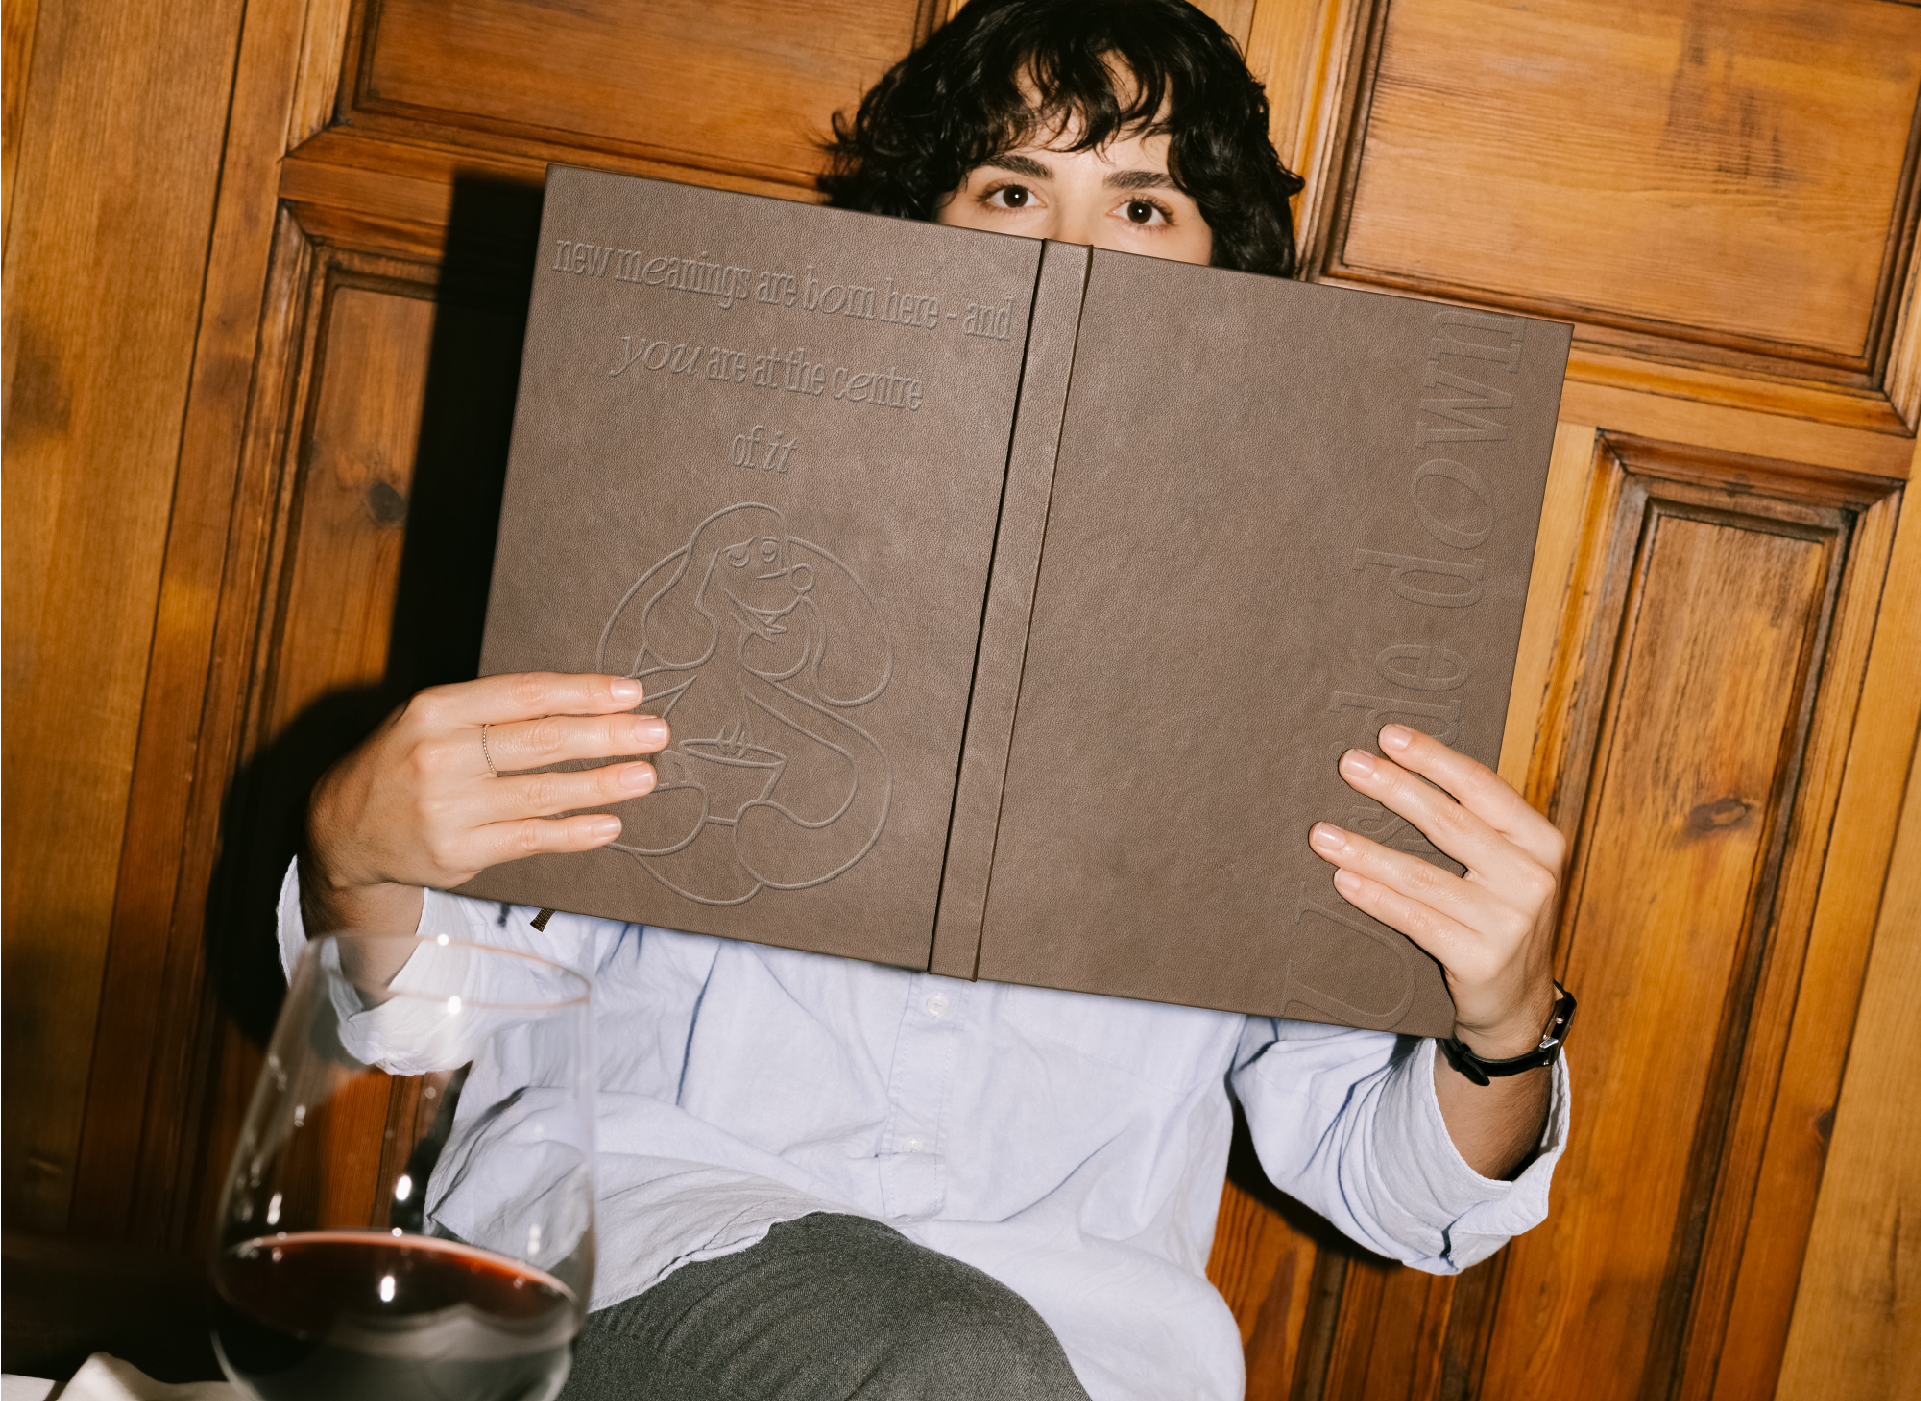 new meanings are born here - and
you are at the centre
of it
Upside down